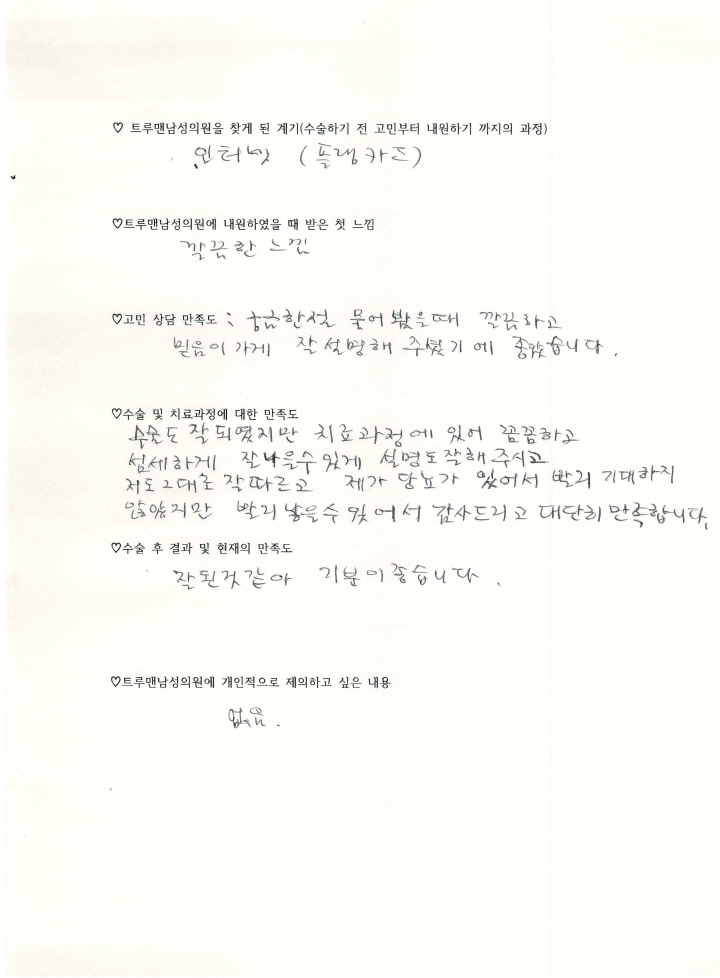 ♡ 트루맨남성의원을 찾게 된 계기(수술하기 전 고민부터 내원하기 까지의 과정)
인터넷 (플랭카드)
♡트루맨남성의원에 내원하였을 때 받은 첫 느낌
깔끔한 느낌
♡고민 상담 만족도 : 궁금한점 물어 봤을때 깔끔하고
믿음이 가게 잘 설명해 주셨기에 좋았습니다.
♡수술 및 치료과정에 대한 만족도
수술도 잘 되였지만 치료과정에 있어 꼼꼼하고
섬세하게 잘나을수 있게 설명도 잘해 주시고
저도 그대로 잘따르고 제가 당뇨가 있어서 빨리 기대하지
않았지만 빨리 낳을수 있어서 감사드리고 대단히 만족합니다.
♡수술 후 결과 및 현재의 만족도
잘된것같아 기분이좋습니다.
♡트루맨남성의원에 개인적으로 제의하고 싶은 내용
없음.